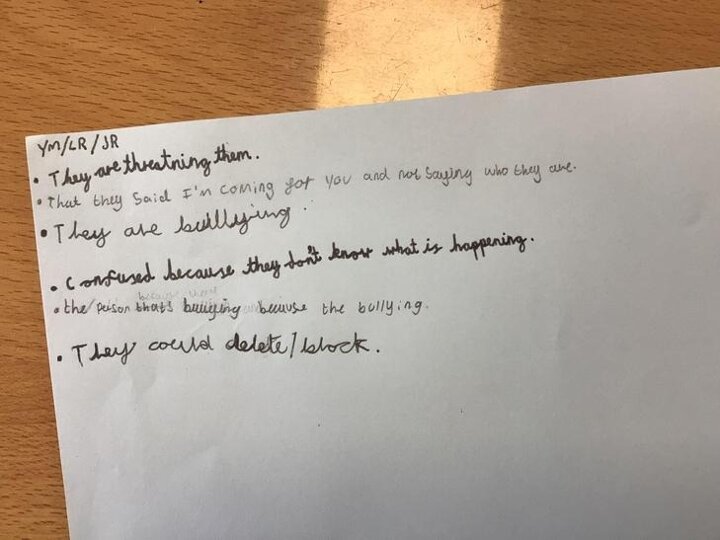 YM/LR/JR
• They are threatning them.
• That they said I'm coming got you and not saying who they are.
• They are bullying.
• Confused because they don't know what is happening.
• the/person that's bullying because the bullying.
• They could delete/block.